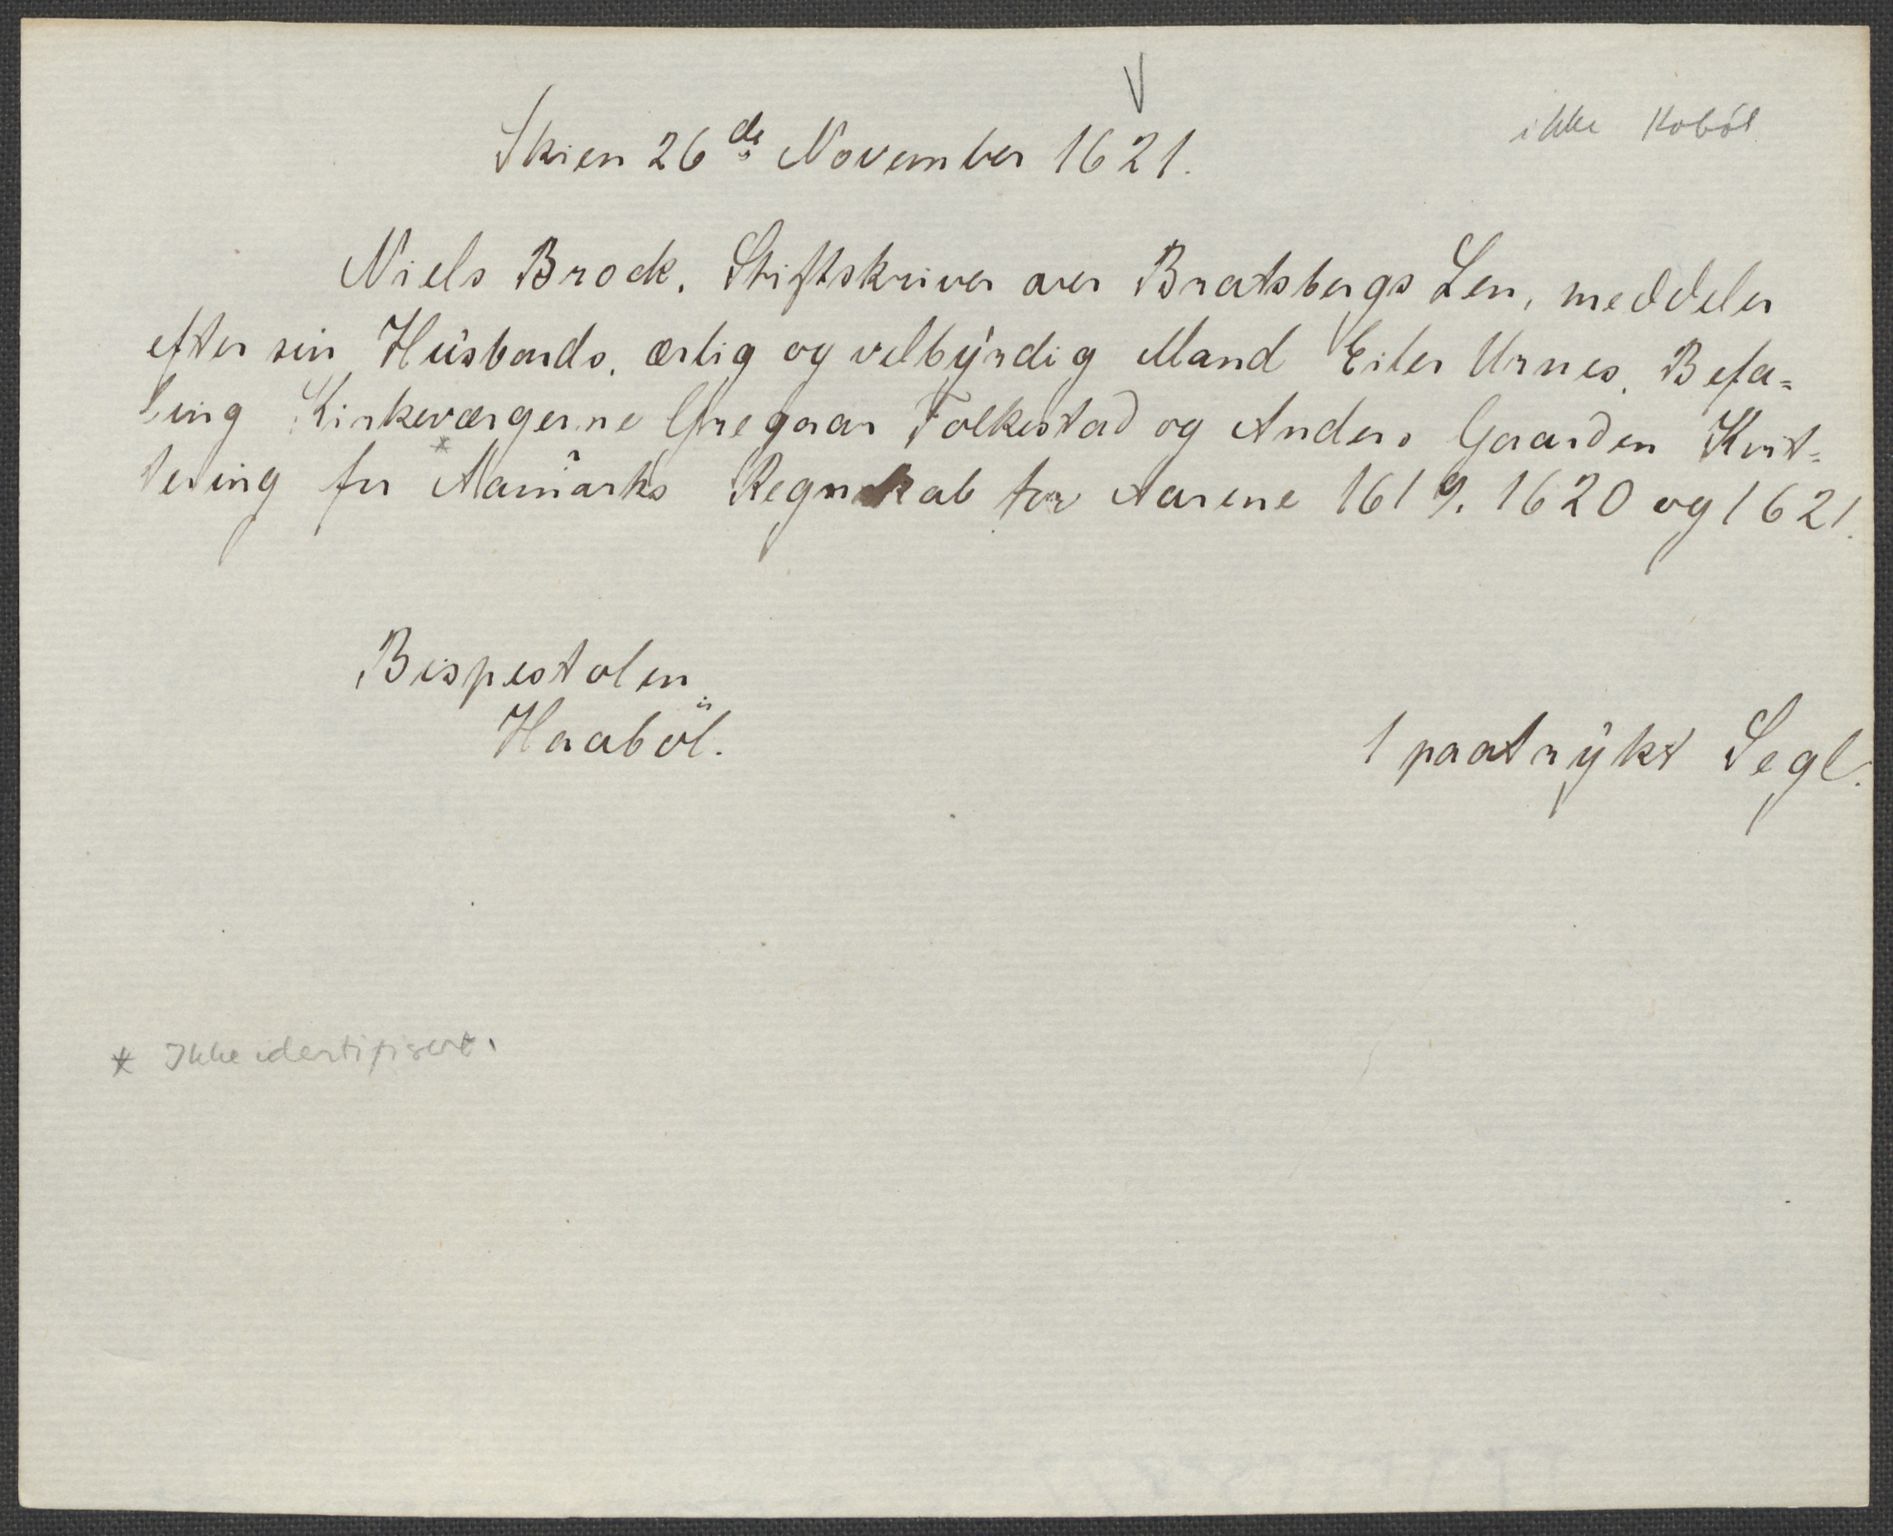 ikke Kobøl
Skien 26de November 1621.
Niels Brock, Stiftskriver over Bratsbergs Len, meddeler
efter sin Husbonds, ærlig og velbyrdig Mand Eiler Urnes, Befa=
ling Kirkeværgerne Gregaar Folkestad og Anders Gaarden Kvit=
tering for Aamarks Regnskab for Aarene 1619. 1620 og 1621.
Bispestolen
Haaböl.
1 paatrykt Segl.
* Ikke identifisert.